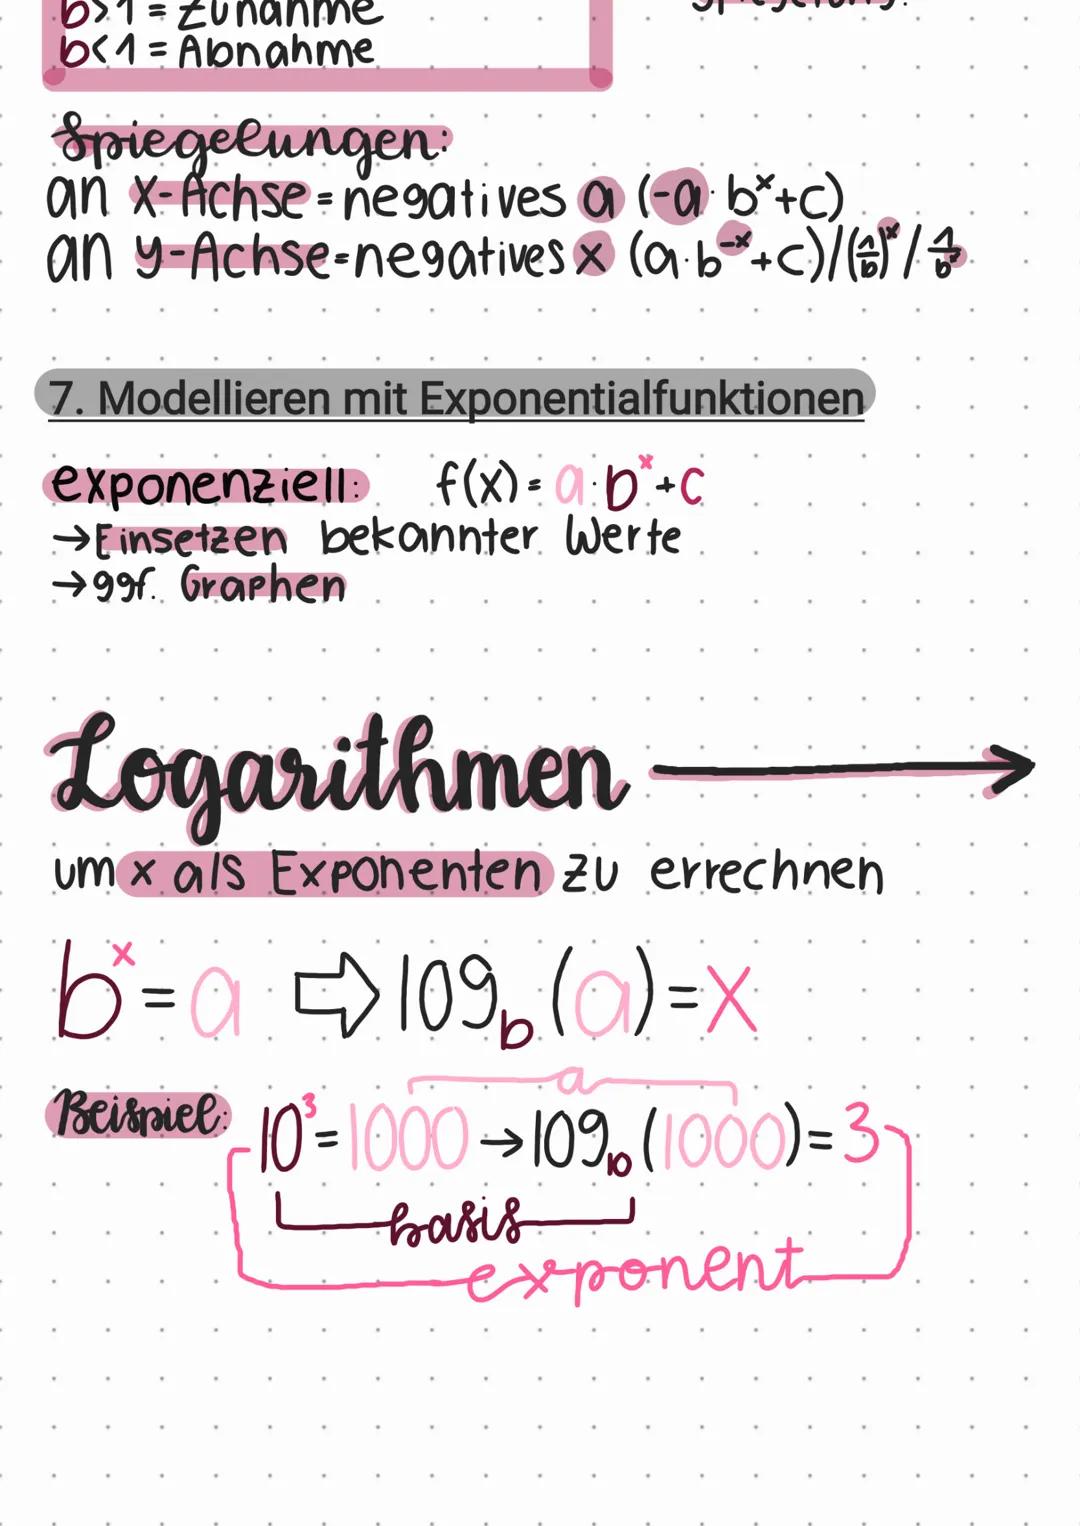 b>1 = Zunahme
b<1 = Abnahme
Spiegelungen:
an x-Achse = negatives a (-a · bˣ + c)
an y-Achse = negatives x (a · b⁻ˣ + c) / (1/b)ˣ / 1/bˣ
7. Modellieren mit Exponentialfunktionen
exponenziell: f(x) = a · bˣ + c
→ Einsetzen bekannter Werte
→ ggf. Graphen
Logarithmen →
um x als Exponenten zu errechnen
bˣ = a ⇨ log_b (a) = x
a
Beispiel: 10³ = 1000 → log₁₀ (1000) = 3
basis
exponent